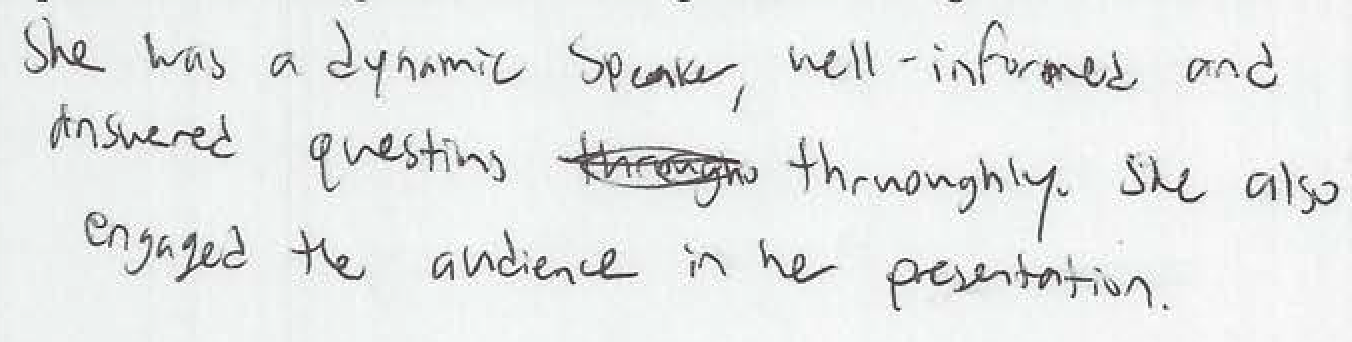 She was a dynamic Speaker, well-informed and
Answered questins throughly. She also
engaged the audience in her presentation.